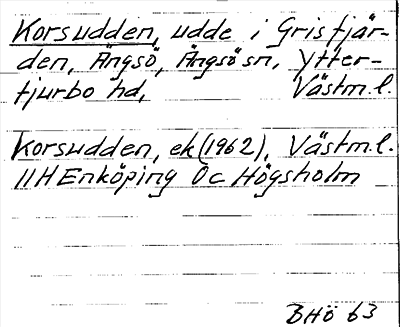 Korsudden, udde i Grisfjär-
den, Ängsö, Ängsö sn, Ytter-
tjurbo hd, Västm.l.
Korsudden, ek (1962), Västm.l.
11H Enköping 0c Högsholm
BHö 63